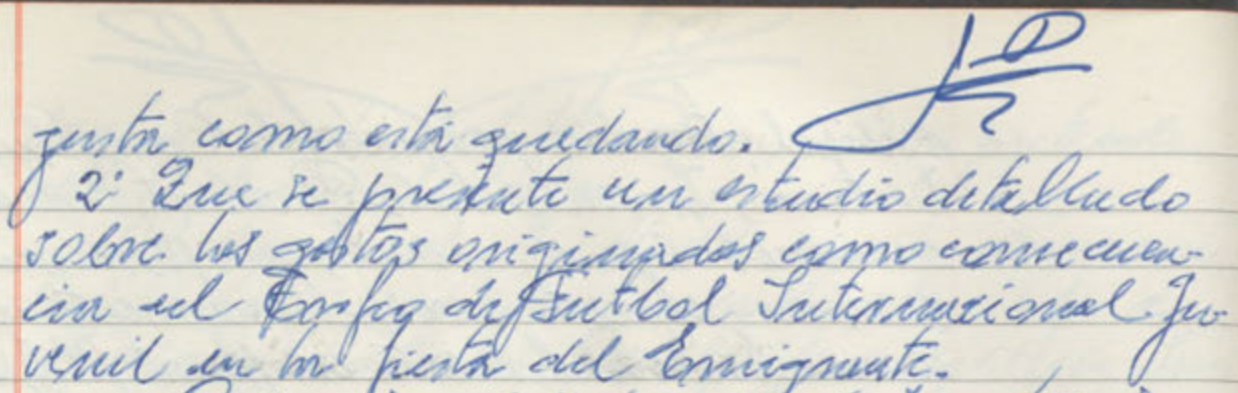 gusta como está quedando.
2º Que se presente un estudio detallado
sobre los gastos originados como consecuen-
cia del Trofeo de Futbol Internacional Ju-
venil en la fiesta del Emigrante.